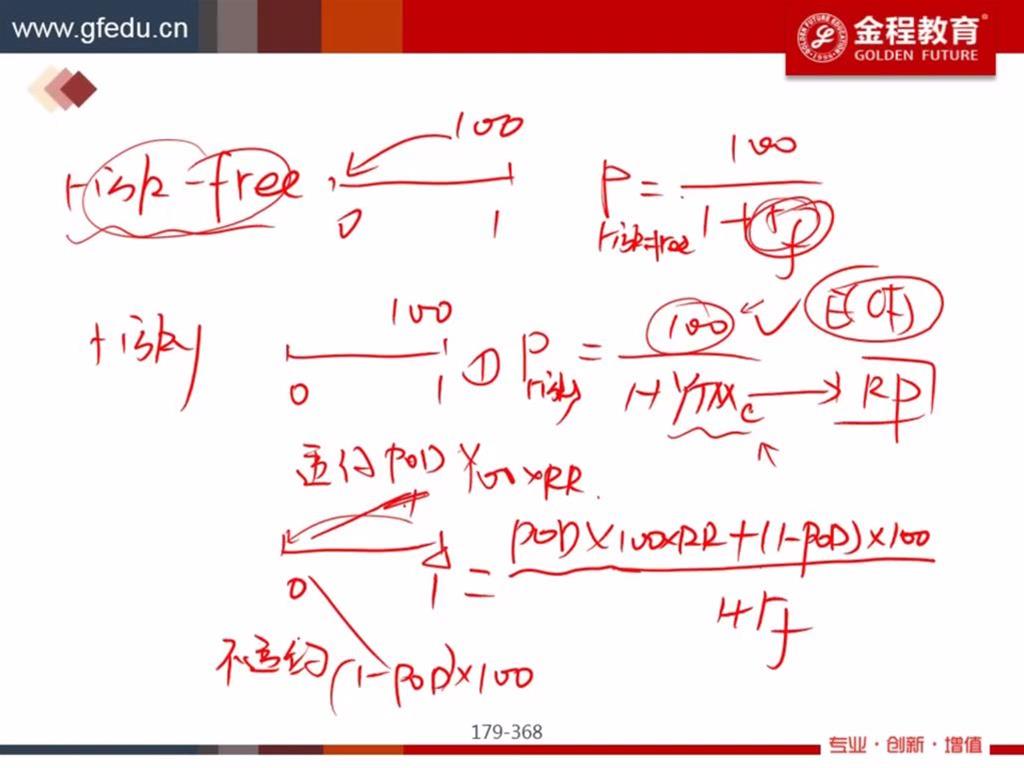 www.gfedu.cn
金程教育
GOLDEN FUTURE
risk-free
100
0 1
P risk-free = 100 / 1+rf
risky
100
0 1
① P risky = 100 / 1+YTMc → RP
E(CF)
违约 POD×100×RR
0 1
= POD×100×RR+(1-POD)×100 / 1+rf
不违约 (1-POD)×100
179-368
专业·创新·增值